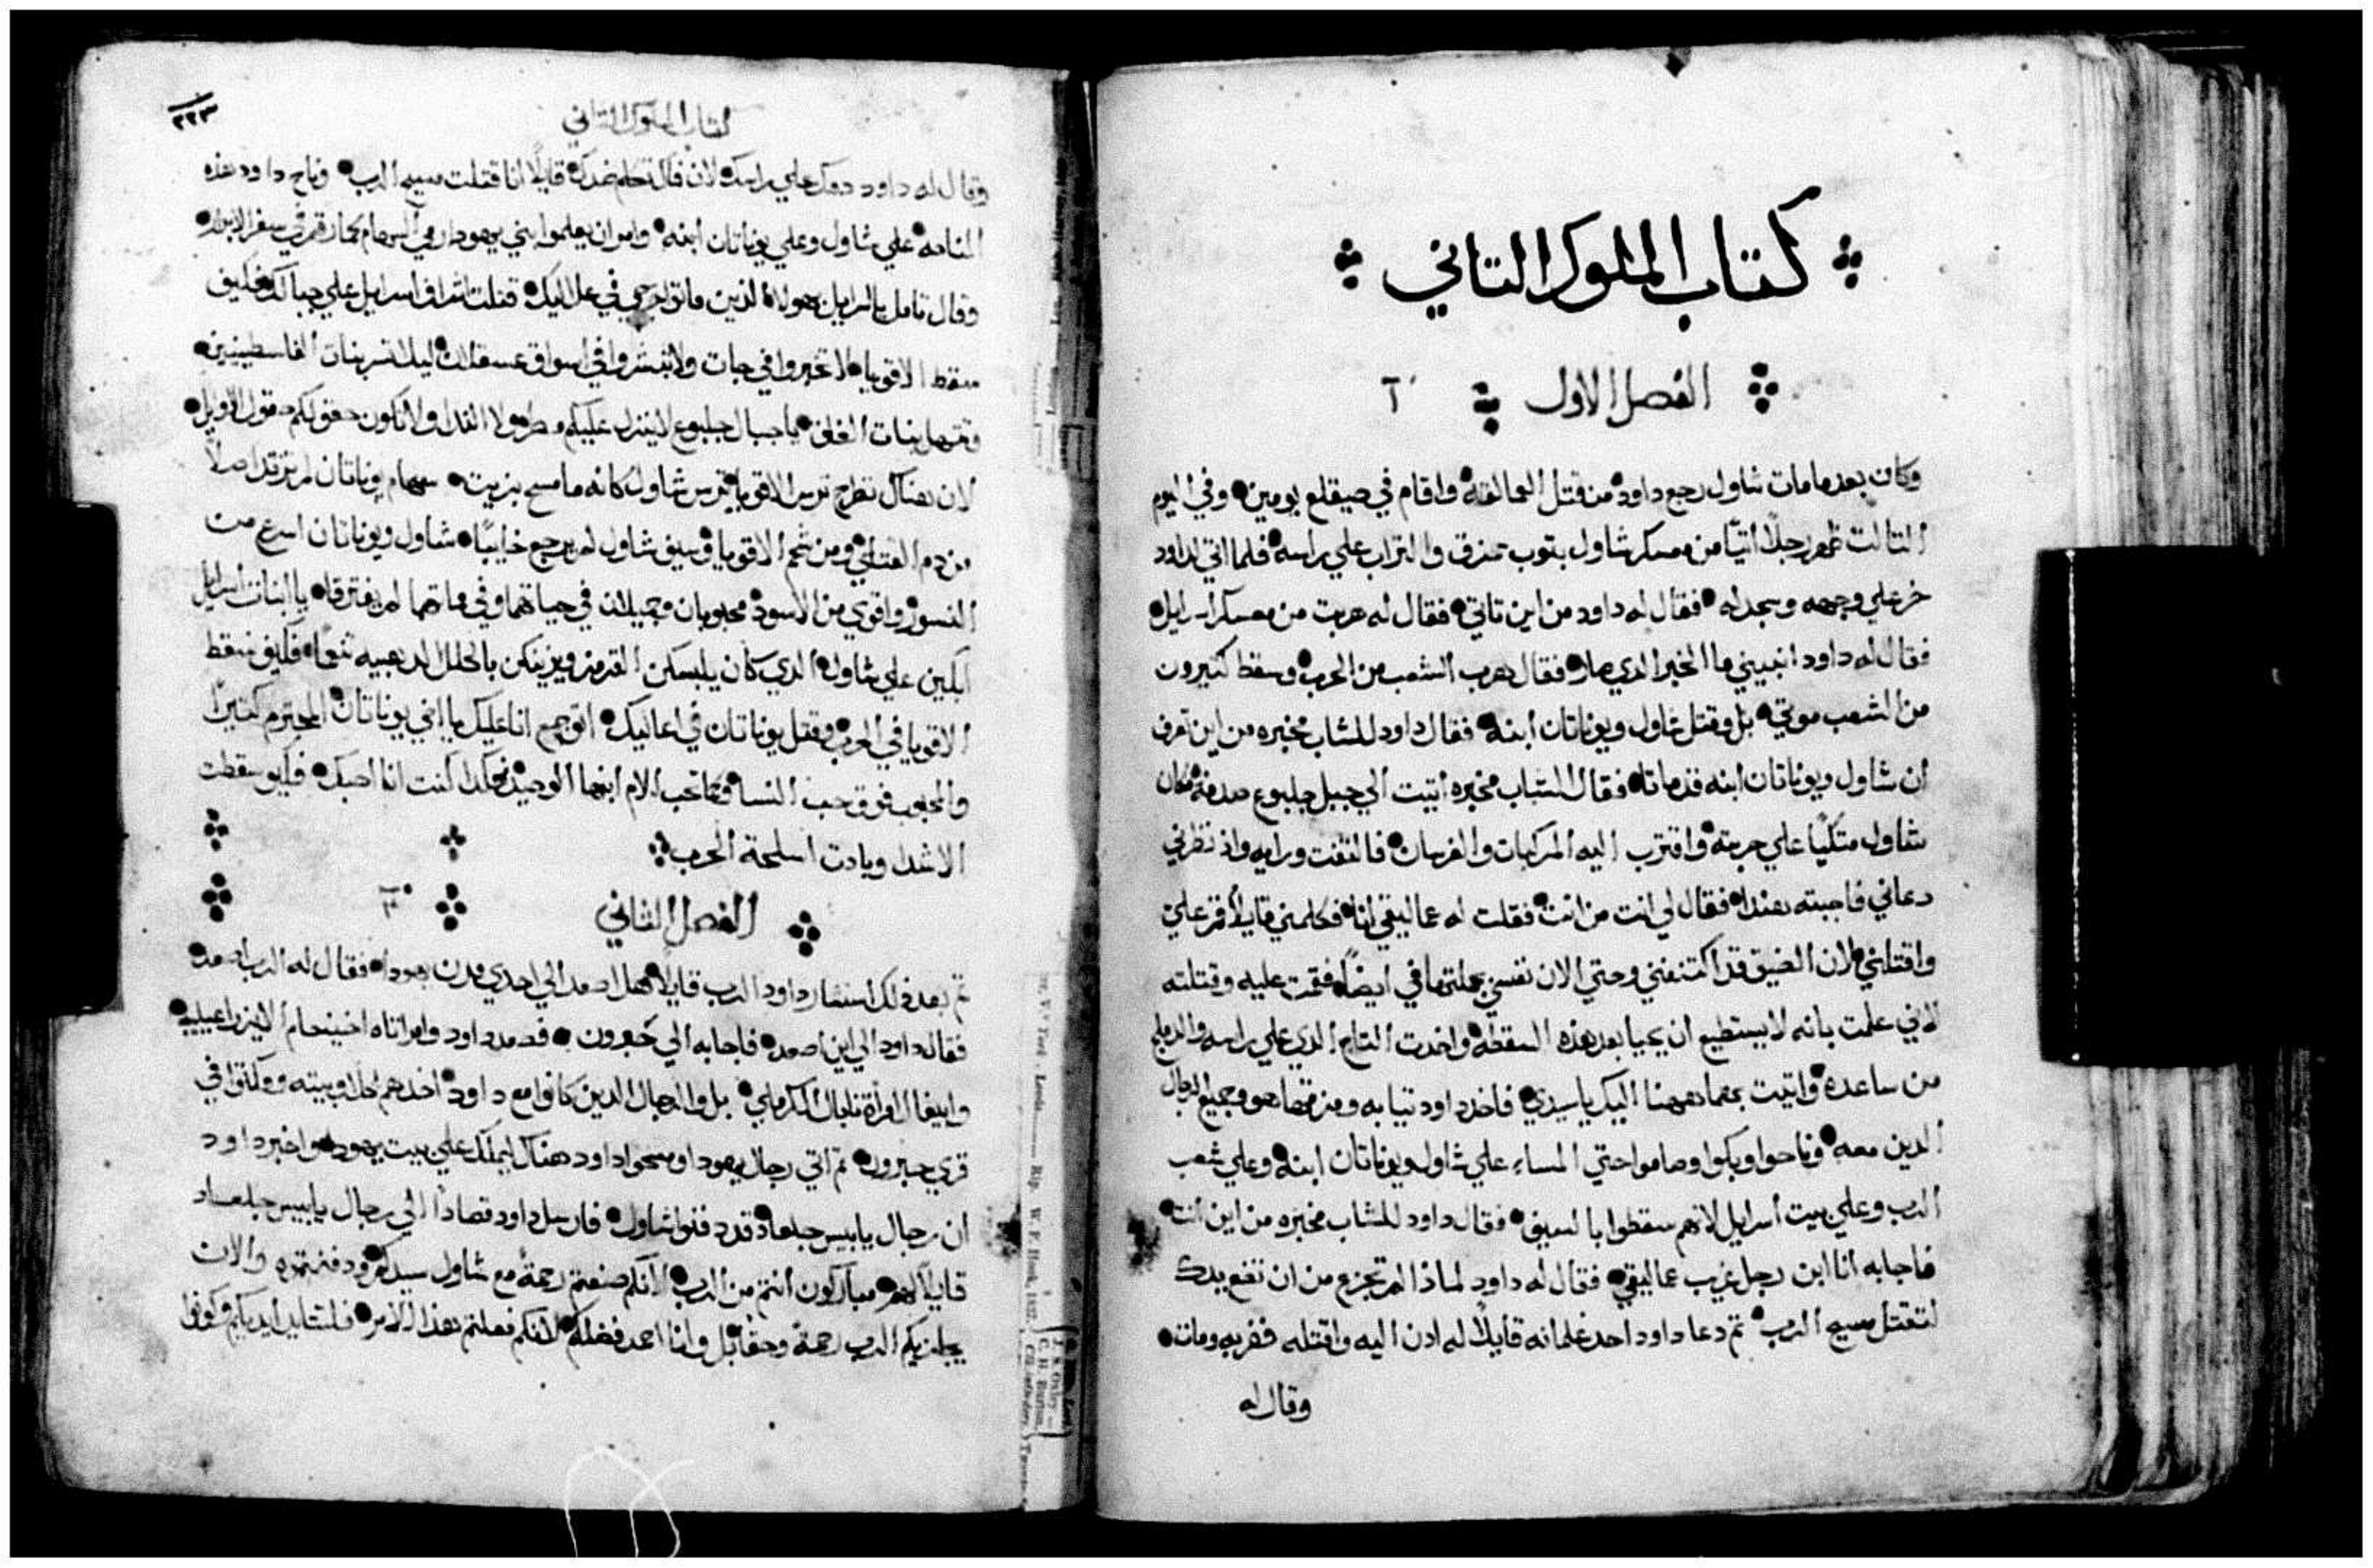 كتاب الملوك التاني
الفصل الاول آ
وكان بعد ما مات شاول رجع داود من قتل العمالقة واقام في صيقلع يومين وفي اليوم
التالت ظهر رجلًا اتيًا من معسكر شاول بتوب ممزق والتراب علي راسه فلما اتي لداود
خر علي وجهه وسجد له فقال له داود من اين تاتي فقال له هربت من معسكر اسرايل
فقال له داود انبيني ما الخبر الدي صار فقال هرب الشعب من الحرب وسقط كتيرون
من الشعب موتي بل وقتل شاول ويوناتان ابنه فقال داود للشاب مخبره من اين تعرف
ان شاول ويوناتان ابنه قد ماتا فقال الشاب مخبره اتيت الي جبل جلبوع صدفة وكان
شاول متكيًا علي حربته واقترب اليه المركبات والفرسان فالتفت ورايه واذ نظرني
دعاني فاجبته هنندا فقال لي انت من انت فقلت له عماليقي انا فكلمني قايلًا قم علي
واقتلني لان الضيق قد اكتنفني وحتي الان نفسي بجملتها في ايضًا فقمت عليه وقتلته
لاني علمت بانه لا يستطيع ان يحيا بعد هذه السقطه واخدت التاج الدي علي راسه والدملج
من ساعده واتيت بهما ههنا اليك يا سيدي فاخد داود تيابه ومزقها هو وجميع الرجال
الدين معه وناحوا وبكوا وصاموا حتي المساء علي شاول ويوناتان ابنه وعلي شعب
الرب وعلي بيت اسرايل لانهم سقطوا بالسيف فقال داود للشاب مخبره من اين انت
فاجابه انا ابن رجل غريب عماليقي فقال له داود لماذا لم تجزع من ان تضع يدك
لتقتل مسيح الرب تم دعا داود احد غلمانه قايلًا له ادن اليه واقتله فضربه ومات
وقال له
كتاب الملوك التاني
٢٢٣
وقال له داود دمك علي راسك لان فاك تكلم ضدك قايلًا انا قتلت مسيح الرب وناح داود هذه
المناحه علي شاول وعلي يوناتان ابنه وامر ان يعلموا بني يهودا رمي السهام كما رقم في سفر الابرار
وقال تامل يا اسرايل هولاء الذين ماتوا جرحي في علاليك قتلت اشراف اسرايل علي جبالك فكيف
سقط الاقويا لا تخبروا في جات ولا تبشروا في اسواق عسقلان ليلا تسر بنات الفلسطينيين
وتبتهل بنات الغلف يا جبال جلبوع لا ينزل عليكم مطر ولا الندا ولا تكون حقولكم حقول الاوايل
لان هناك تطرح ترس الاقويا ترس شاول كانه ما مسح بزيت سهام يوناتان لم ترتد اصلًا
من دم القتلي ومن شحم الاقويا وسيف شاول لم يرجع خايبًا شاول ويوناتان اسرع من
النسور واقوي من الاسود محبوبان وجميلان في حياتهما وفي مماتهما لم يفترقا يا بنات اسرايل
ابكين علي شاول الدي كان يلبسكن القرمز ويزينكن بالحلل الدهبيه تنعمًا فكيف سقط
الاقويا في الحرب وقتل يوناتان في اعاليك اتوجع انا عليك يا اخي يوناتان المحترم كتيرًا
والمحبوب فوق حب النسا وكما تحب الام ابنها الوحيد هكدا كنت انا احبك فكيف سقطت
الاشدا وبادت اسلحة الحرب
الفصل التاني ٢
تم بعد ذلك استشار داود الرب قايلًا هل اصعد الي احدي مدن يهودا فقال له الرب اصعد
فقال داود الي اين اصعد فاجابه الي حبرون فصعد داود وامراتاه اخينحام الايزراعيليه
وابيغال امراة نابال الكرملي بل والرجال الدين كانوا مع داود اخدهم كلًا وبيته ومكتوا في
قري حبرون تم اتي رجال يهودا ومسحوا داود هناك ليملك علي بيت يهودا واخبر داود
ان رجال يابيس جلعاد قد دفنوا شاول فارسل داود قصادًا الي رجال يابيس جلعاد
قايلًا لهم مباركون انتم من الرب لانكم صنعتم رحمةً مع شاول سيدكم ودفنتموه والان
يجازيكم الرب رحمةً وحقًا بل وانا احمد فضلكم لانكم فعلتم هذا الامر فلتتايد ايديكم وكونوا